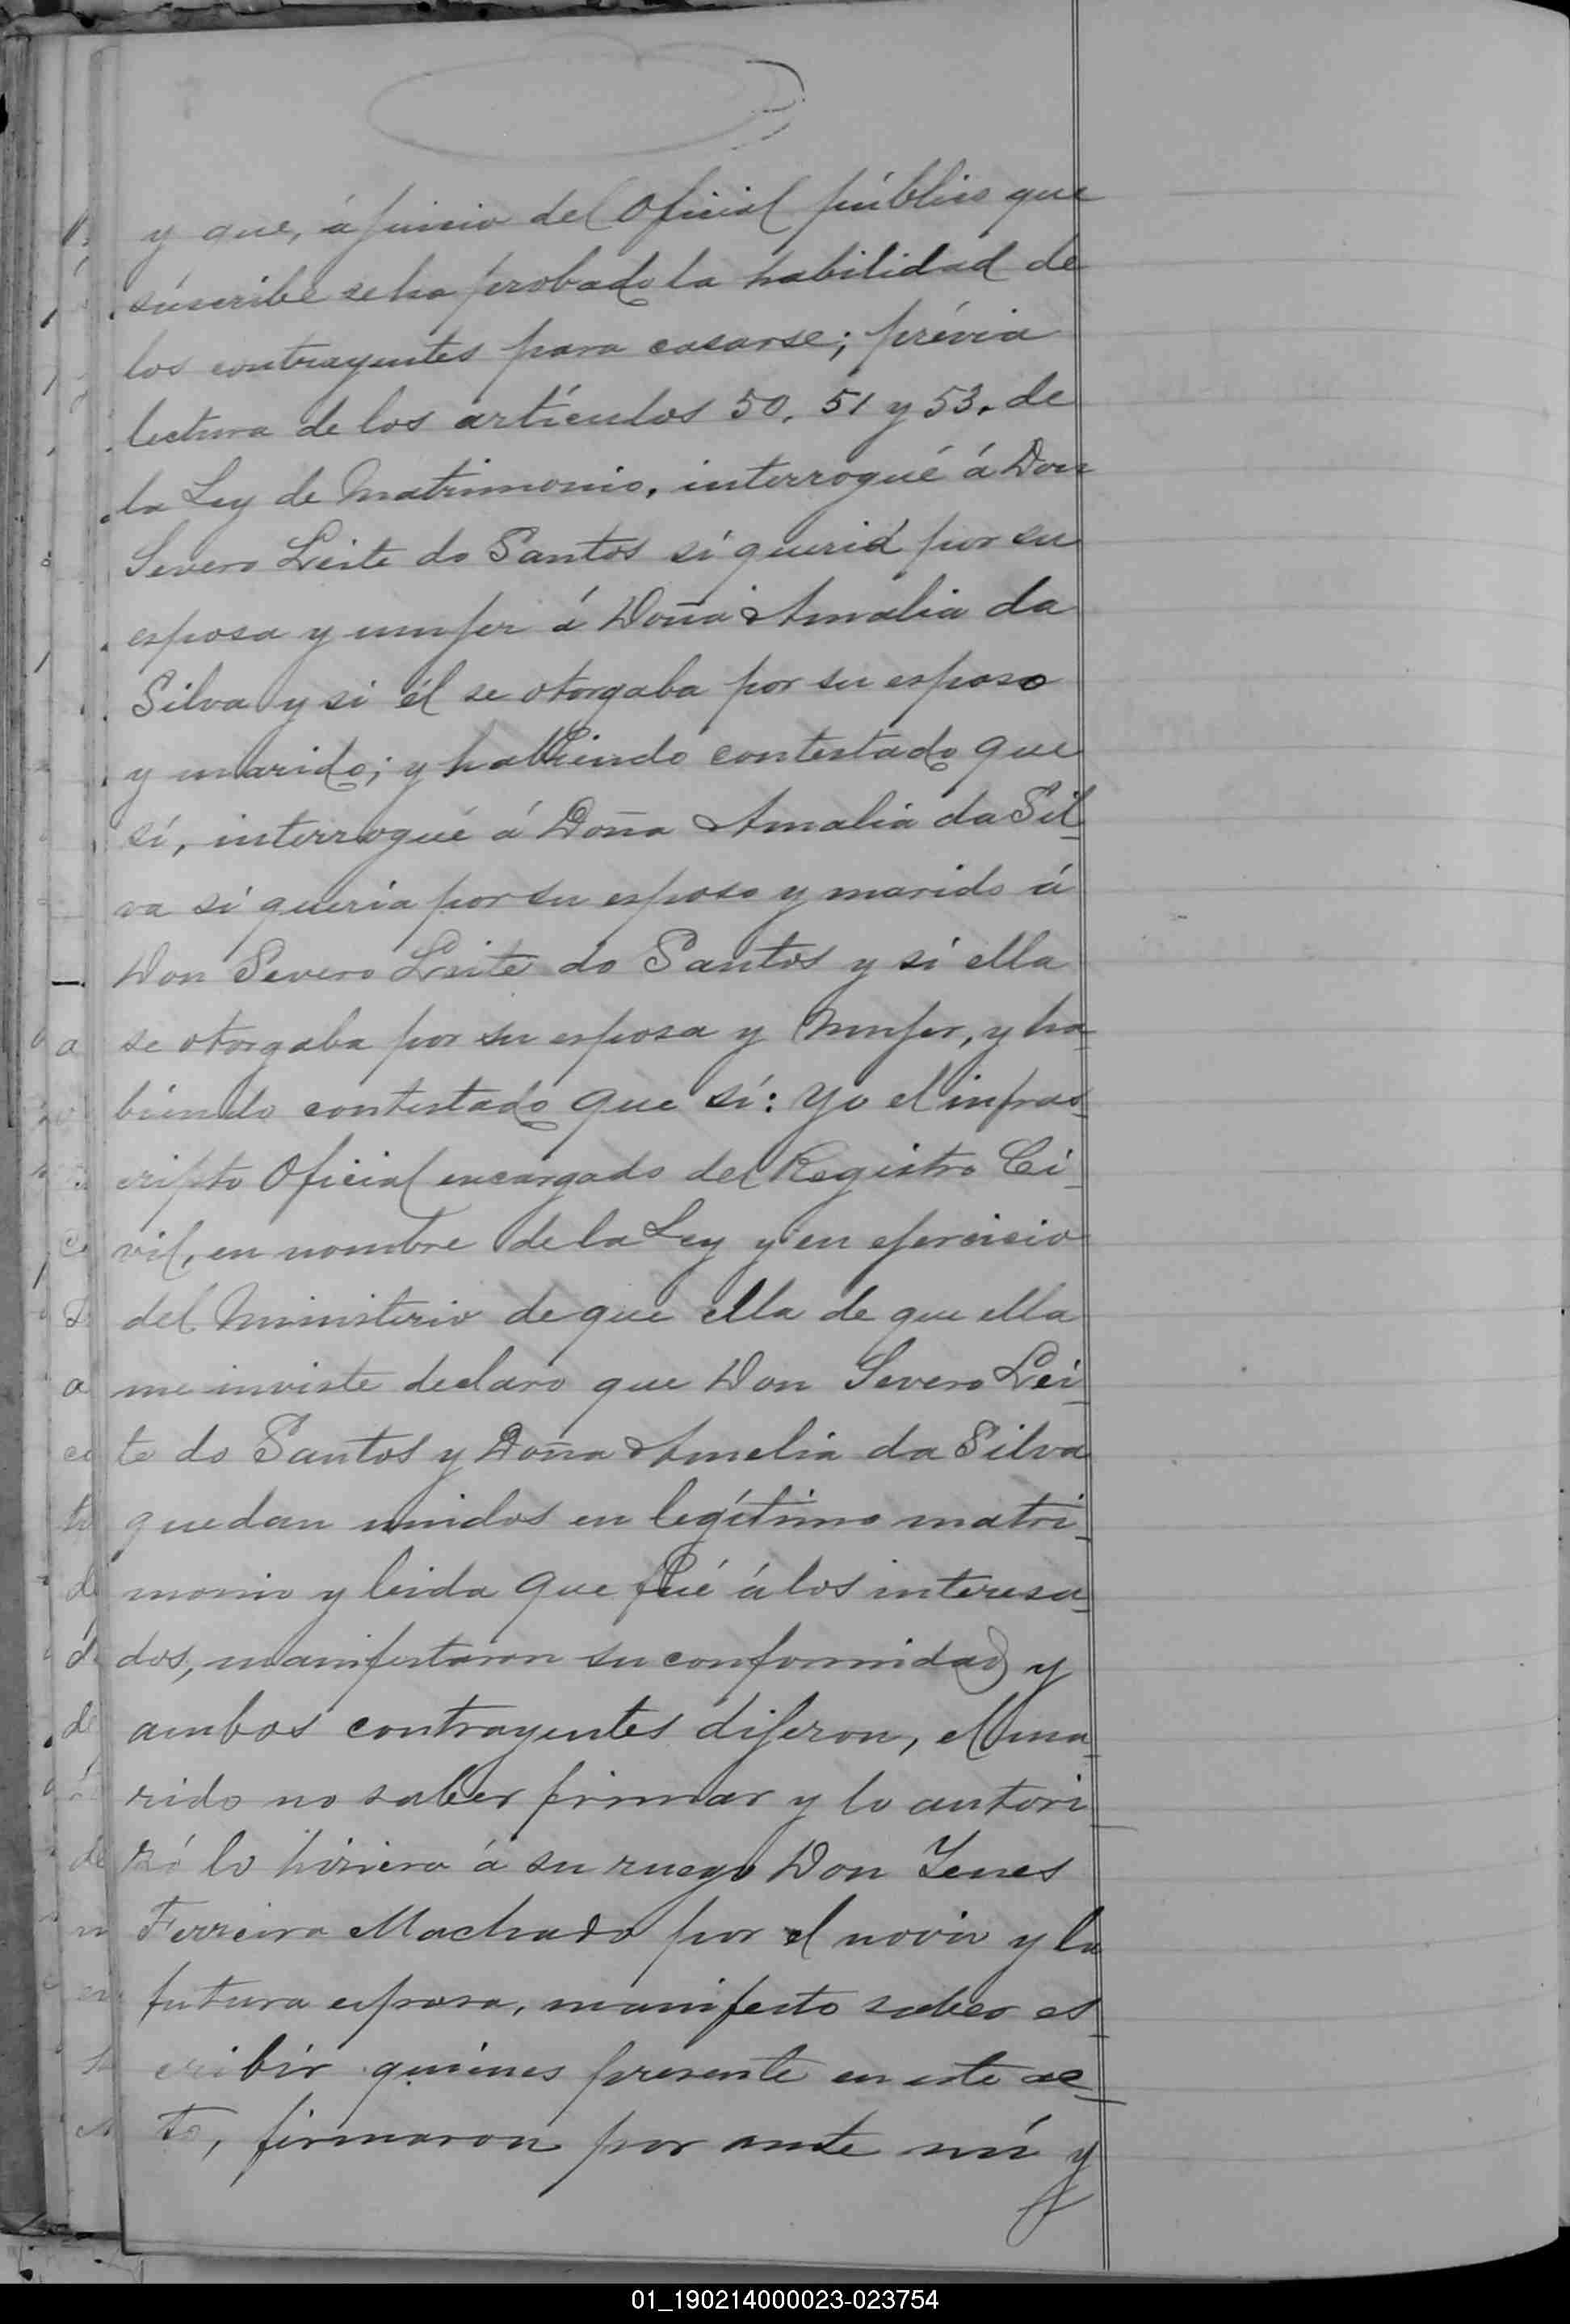 y que, á juicio del Oficial público que
súscribe se ha probado la habilidad de
los contrayentes para casarse; prévia
lectura de los artículos 50, 51 y 53. de
la Ley de Matrimonio, interrogué á Don
Severo Leite do Santos sí queria por su
esposa y mujer á Doña Amalia da
Silva y si él se otorgaba por su esposo
y marido; y habiendo contestado que
sí, interrogué á Doña Amalia da Sil_
va sí queria por su esposo y marido á
Don Severo Leite do Santos y sí ella
se otorgaba por su esposa y Mujer, y ha_
biendo contestado que sí: Yo el infras_
cripto Oficial encargado del Registro Ci_
vil, en nombre de la Ley y en ejercicio
del Ministerio de que ella de que ella
me inviste declaro que Don Severo Lei_
te do Santos y Doña Amelia da Silva
quedan unidos en legítimo matri_
monio y leida que fué á los interesa_
dos, manifestaron su conformidad y
ambos contrayentes dijeron, el ma_
rido no saber firmar y lo autori_
zó lo hiciera á su ruego Don Yenes
Ferreira Machado por el novio y la
futura esposa, manifesto saber es_
cribír quienes presente en este ac_
to, firmaron por ante mí y
01_190214000023-023754